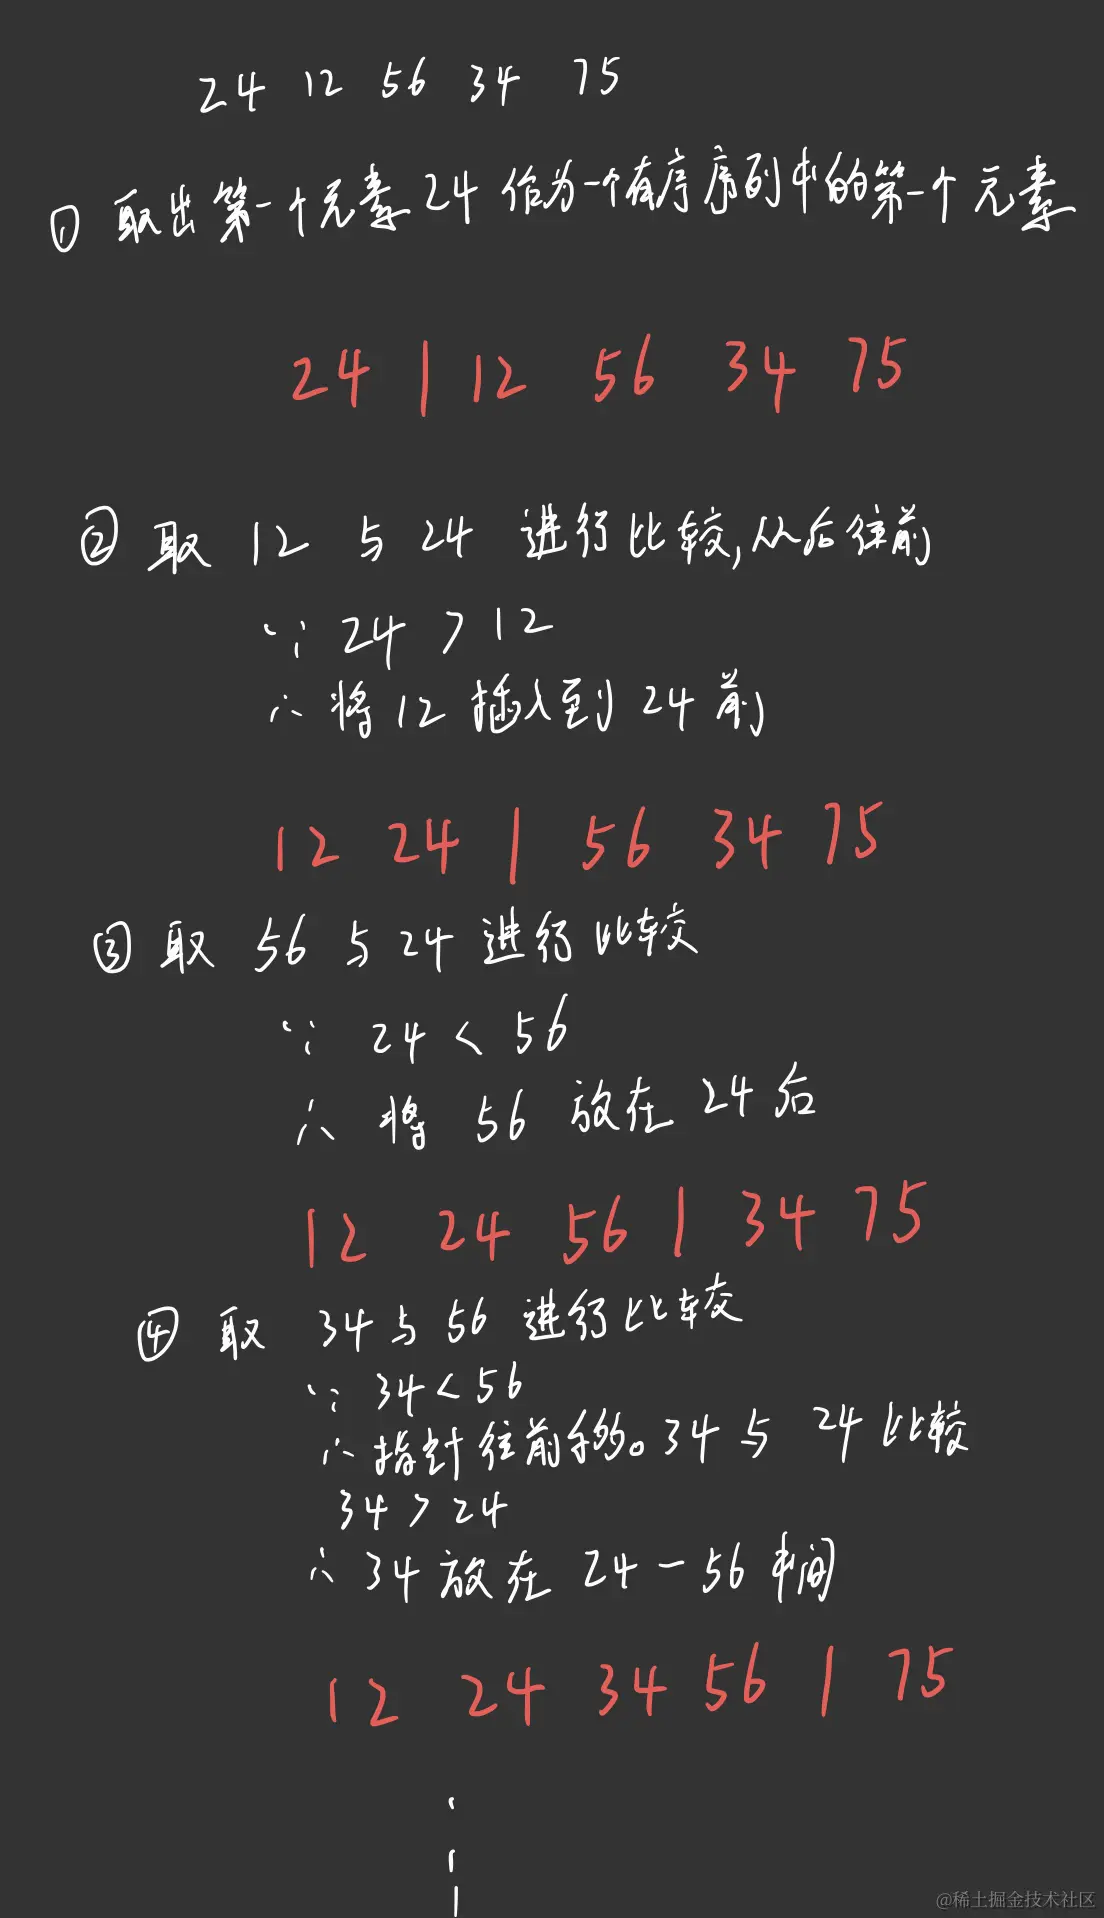 24 12 56 34 75
① 取出第一个元素24作为一个有序序列中的第一个元素
24 | 12 56 34 75
② 取 12 与 24 进行比较,从后往前
∵ 24 > 12
∴ 将12插入到24前
12 24 | 56 34 75
③ 取 56 与 24 进行比较
∵ 24 < 56
∴ 将 56 放在 24 后
12 24 56 | 34 75
④ 取 34 与 56 进行比较
∵ 34 < 56
∴ 指针往前移。34 与 24 比较
34 > 24
∴ 34 放在 24 - 56 中间
12 24 34 56 | 75
@稀土掘金技术社区